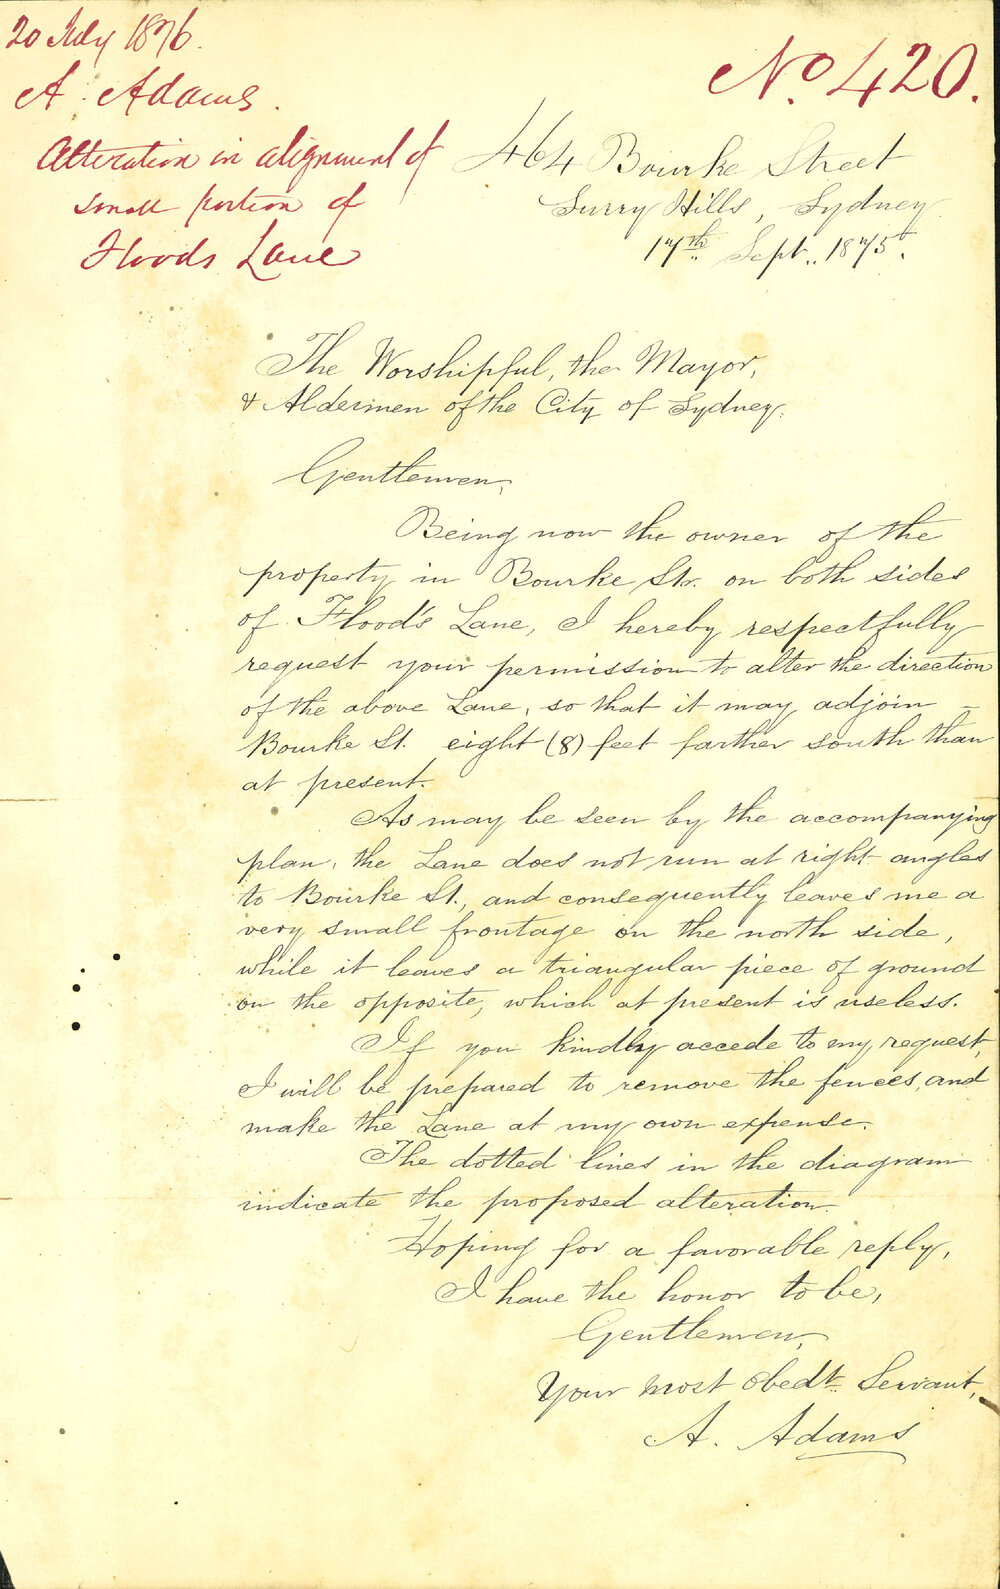 20 July 1876.
A. Adams.
Alteration in alignment of
small portion of
Floods Lane
No. 420.
464 Bourke Street
Surry Hills, Sydney
17th Sept.. 1875.
The Worshipful, the Mayor,
& Aldermen of the City of Sydney.
Gentlemen,
Being now the owner of the
property in Bourke Str. on both sides
of Flood's Lane, I hereby respectfully
request your permission to alter the direction
of the above Lane, so that it may adjoin
Bourke St. eight (8) feet farther south than
at present.
As may be seen by the accompanying
plan, the Lane does not run at right angles
to Bourke St., and consequently leaves me a
very small frontage on the north side,
while it leaves a triangular piece of ground
on the opposite, which at present is useless.
If you kindly accede to my request,
I will be prepared to remove the fences, and
make the Lane at my own expense.
The dotted lines in the diagram
indicate the proposed alteration.
Hoping for a favorable reply,
I have the honor to be,
Gentlemen,
Your most obedt. Servant,
A. Adams